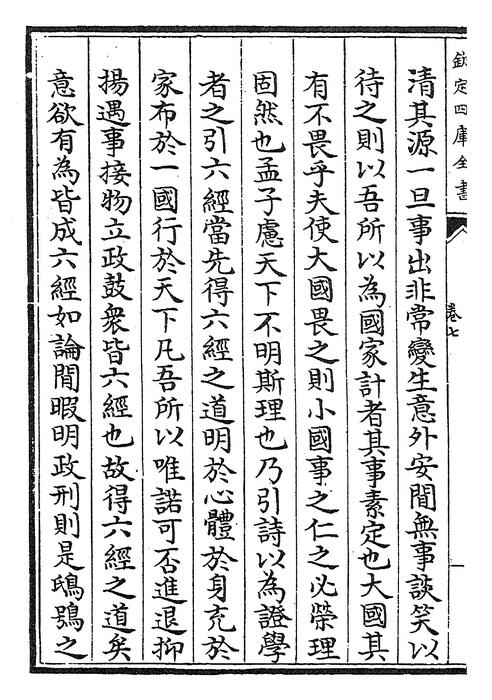 欽定四庫全書
卷七
清其源一旦事出非常變生意外安閒無事談笑以
待之則以吾所以為國家計者其事素定也大國其
有不畏乎夫使大國畏之則小國事之仁之必榮理
固然也孟子慮天下不明斯理也乃引詩以為證學
者之引六經當先得六經之道明於心體於身充於
家布於一國行於天下凡吾所以唯諾可否進退抑
揚遇事接物立政鼓衆皆六經也故得六經之道矣
意欲有為皆成六經如論閒暇明政刑則是鴟鴞之